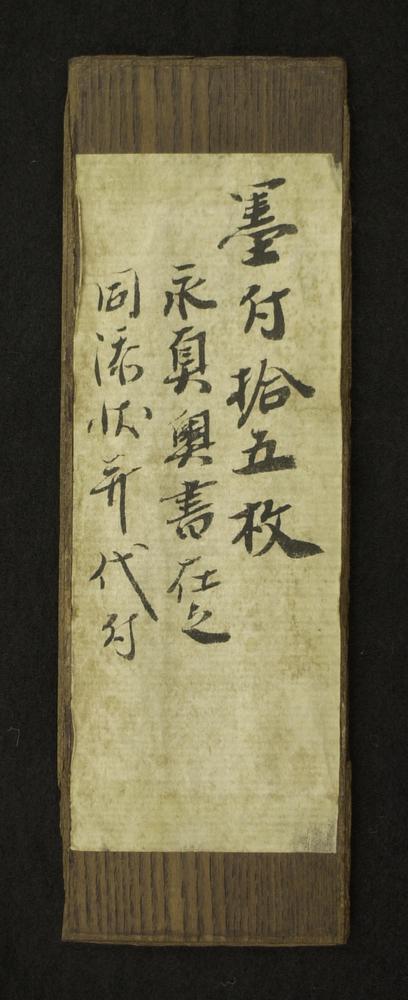 墨付拾五枚
永真奥書在之
同添状并代付